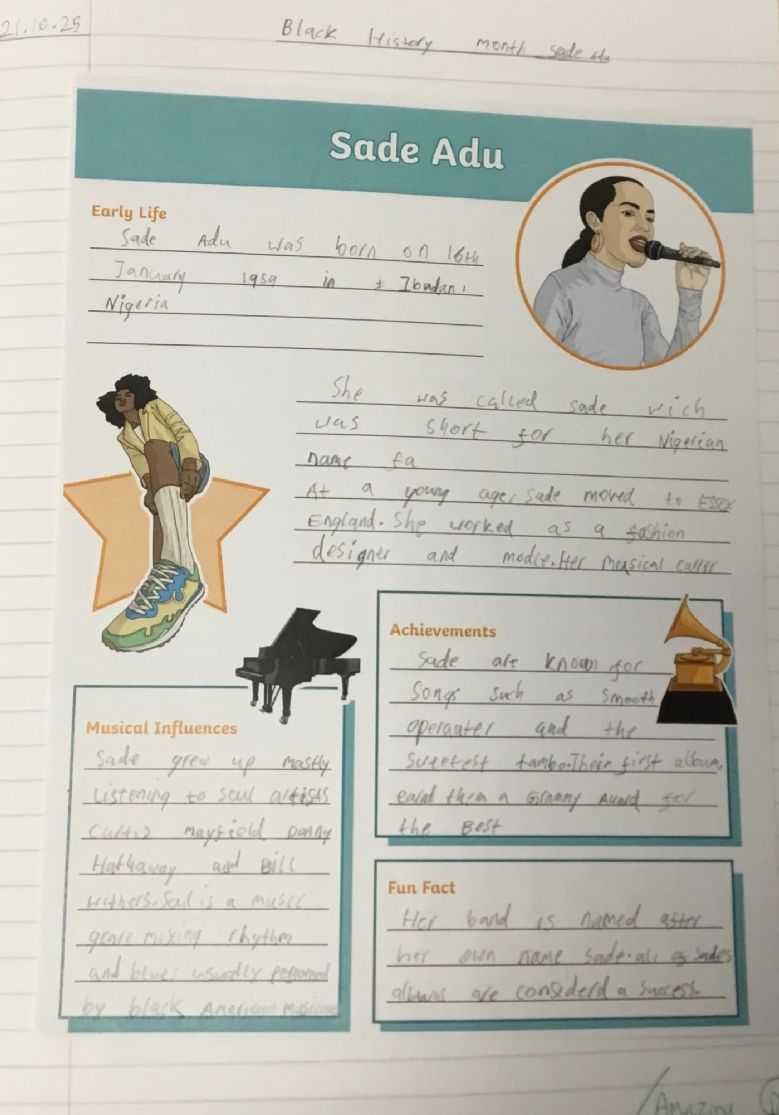 21.10.25
Black History month sade adu
Sade Adu
Early Life
Sade Adu was born on 16th
January 1959 in Ibadan,
Nigeria
She was called sade wich
was short for her Nigerian
name fa
At a young age, sade moved to Essex
England. She worked as a fashion
designer and modle. Her musical carrer
Achievements
Sade are known for
songs such as smooth
operauter and the
sweetest tambo. Their first album,
earnd them a Grammy Award for
the Best
Musical Influences
Sade grew up mostly
Listening to soul artists
curtis mayfield Donny
Hathaway and Bill
withers. Soul is a music
genre mixing rhythm
and blues usually performed
by black American musicians
Fun Fact
Her band is named after
her own name sade. all of sades
albums are considerd a success.
Amazing